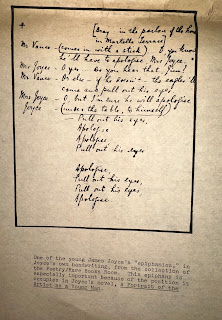 [Bray: in the parlour of the house
in Martello Terrace]
Mr Vance - (comes in with a stick) O, you know,
he'll have to apologise, Mrs Joyce.
Mrs Joyce - O yes . . . Do you hear that, Jim?
Mr Vance - Or else - if he doesn't - the eagles'll
come and pull out his eyes.
Mrs Joyce - O, but I'm sure he will apologise.
Joyce - (under the table, to himself)
- Pull out his eyes,
Apologise,
Apologise,
Pull out his eyes.
Apologise,
Pull out his eyes,
Pull out his eyes,
Apologise.
One of the young James Joyce's "epiphanies," in
Joyce's own handwriting, from the collection of
the Poetry/Rare Books Room. This epiphany is
especially important because of the position it
occupies in Joyce's novel, A Portrait of the
Artist as a Young Man.